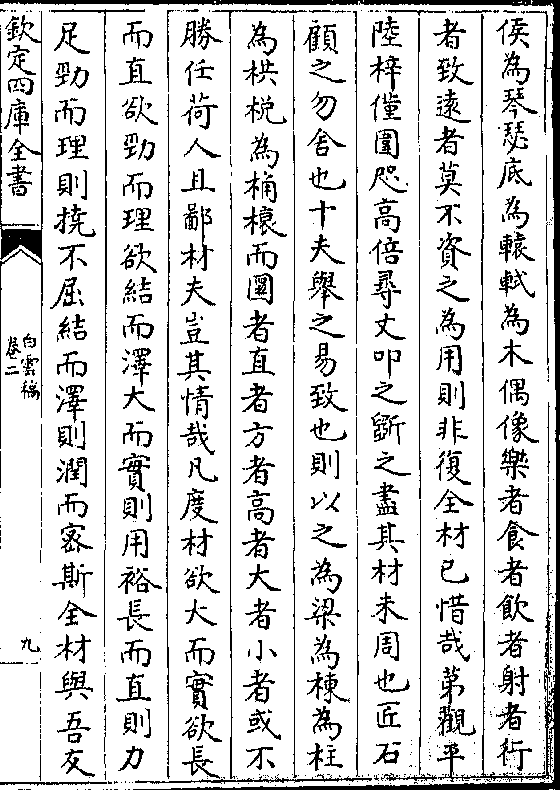 侯為琴瑟底為轅軾為木偶像樂者食者飲者射者行
者致遠者莫不資之為用則非復全材已惜哉苐觀平
陸梓僅圍咫高倍尋丈叩之斵之盡其材未周也匠石
顧之勿舍也十夫舉之易致也則以之為梁為棟為柱
為栱棁為桷榱而圓者直者方者高者大者小者或不
勝任荷人且鄙材夫豈其情哉凡度材欲大而實欲長
而直欲勁而理欲結而澤大而實則用裕長而直則力
足勁而理則撓不屈結而澤則潤而宻斯全材與吾友
欽定四庫全書
白雲稿
卷二
九